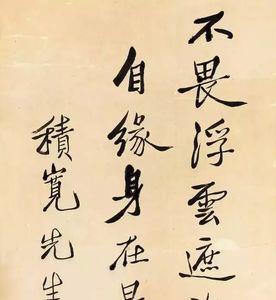 不畏浮雲遮
自緣身在
積寬先生